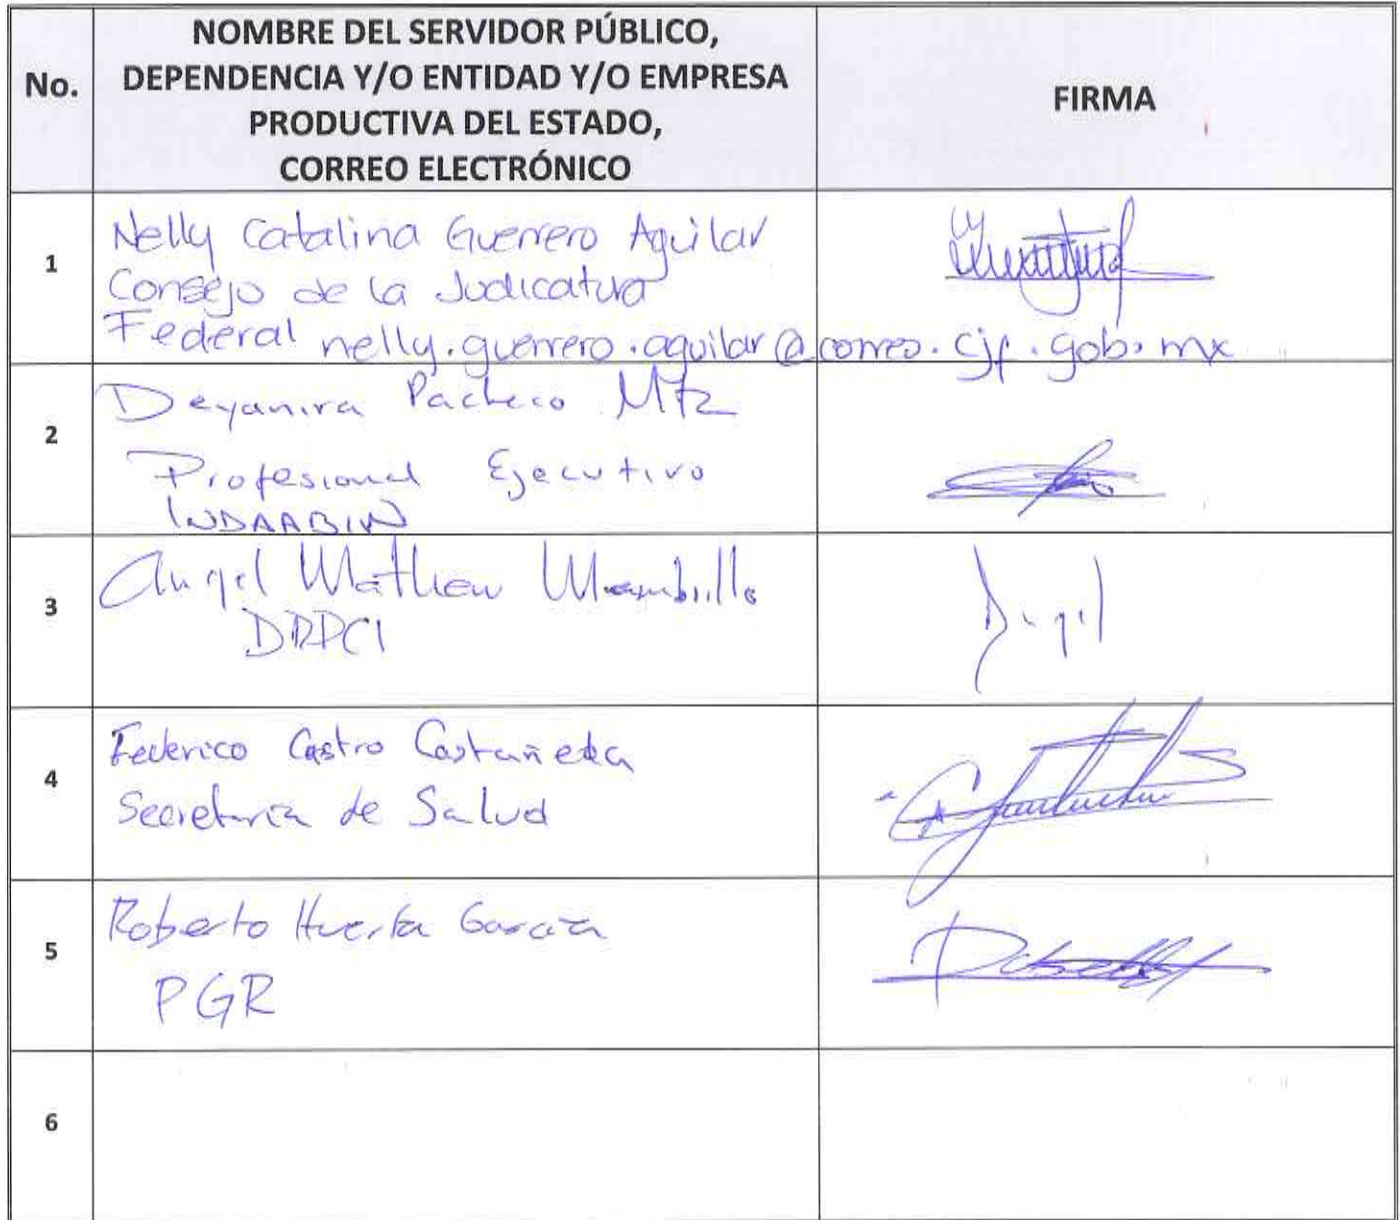 No.
NOMBRE DEL SERVIDOR PÚBLICO,
DEPENDENCIA Y/O ENTIDAD Y/O EMPRESA
PRODUCTIVA DEL ESTADO,
CORREO ELECTRÓNICO
FIRMA
1
Nelly Catalina Guerrero Aguilar
Consejo de la Judicatura
Federal nelly.guerrero.aguilar@correo.cjf.gob.mx
2
Deyanira Pacheco Mtz
Profesional Ejecutivo
INDAABIN
3
Angel Mathew
4
Federico Castro Castañeda
Secretaria de Salud
5
Roberto Huerta García
PGR
6